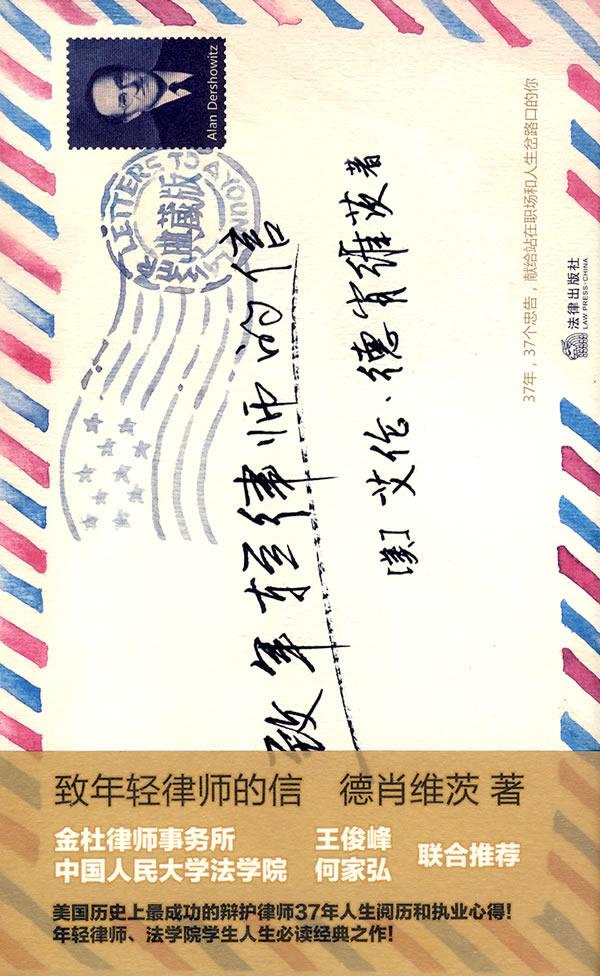 Alan Dershowitz
LETTERS TO A YOU
典藏版
致年轻律师的信
[美] 艾伦·德肖维茨 著
37年，37个忠告，献给站在职场和人生岔路口的你
法律出版社
LAW PRESS·CHINA
致年轻律师的信 德肖维茨 著
金杜律师事务所 王俊峰
中国人民大学法学院 何家弘
联合推荐
美国历史上最成功的辩护律师37年人生阅历和执业心得！
年轻律师、法学院学生人生必读经典之作！